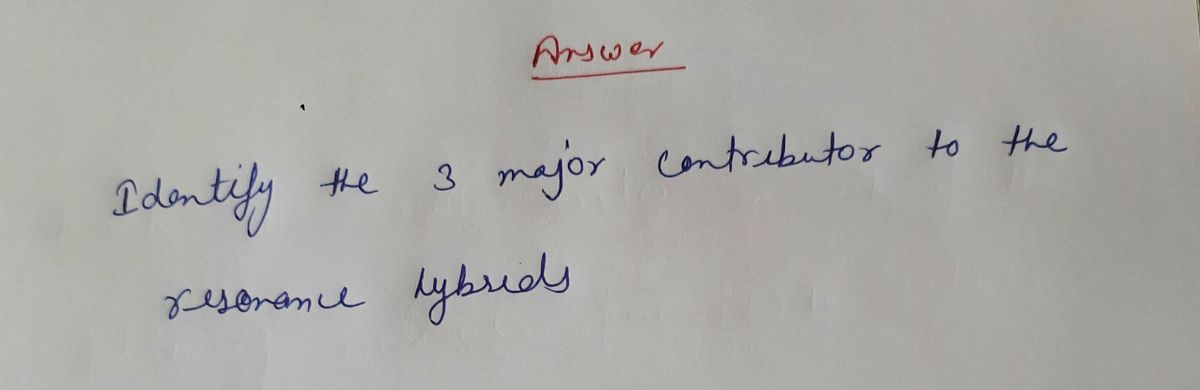 Answer
Identify the 3 major contributor to the
resonance hybrids